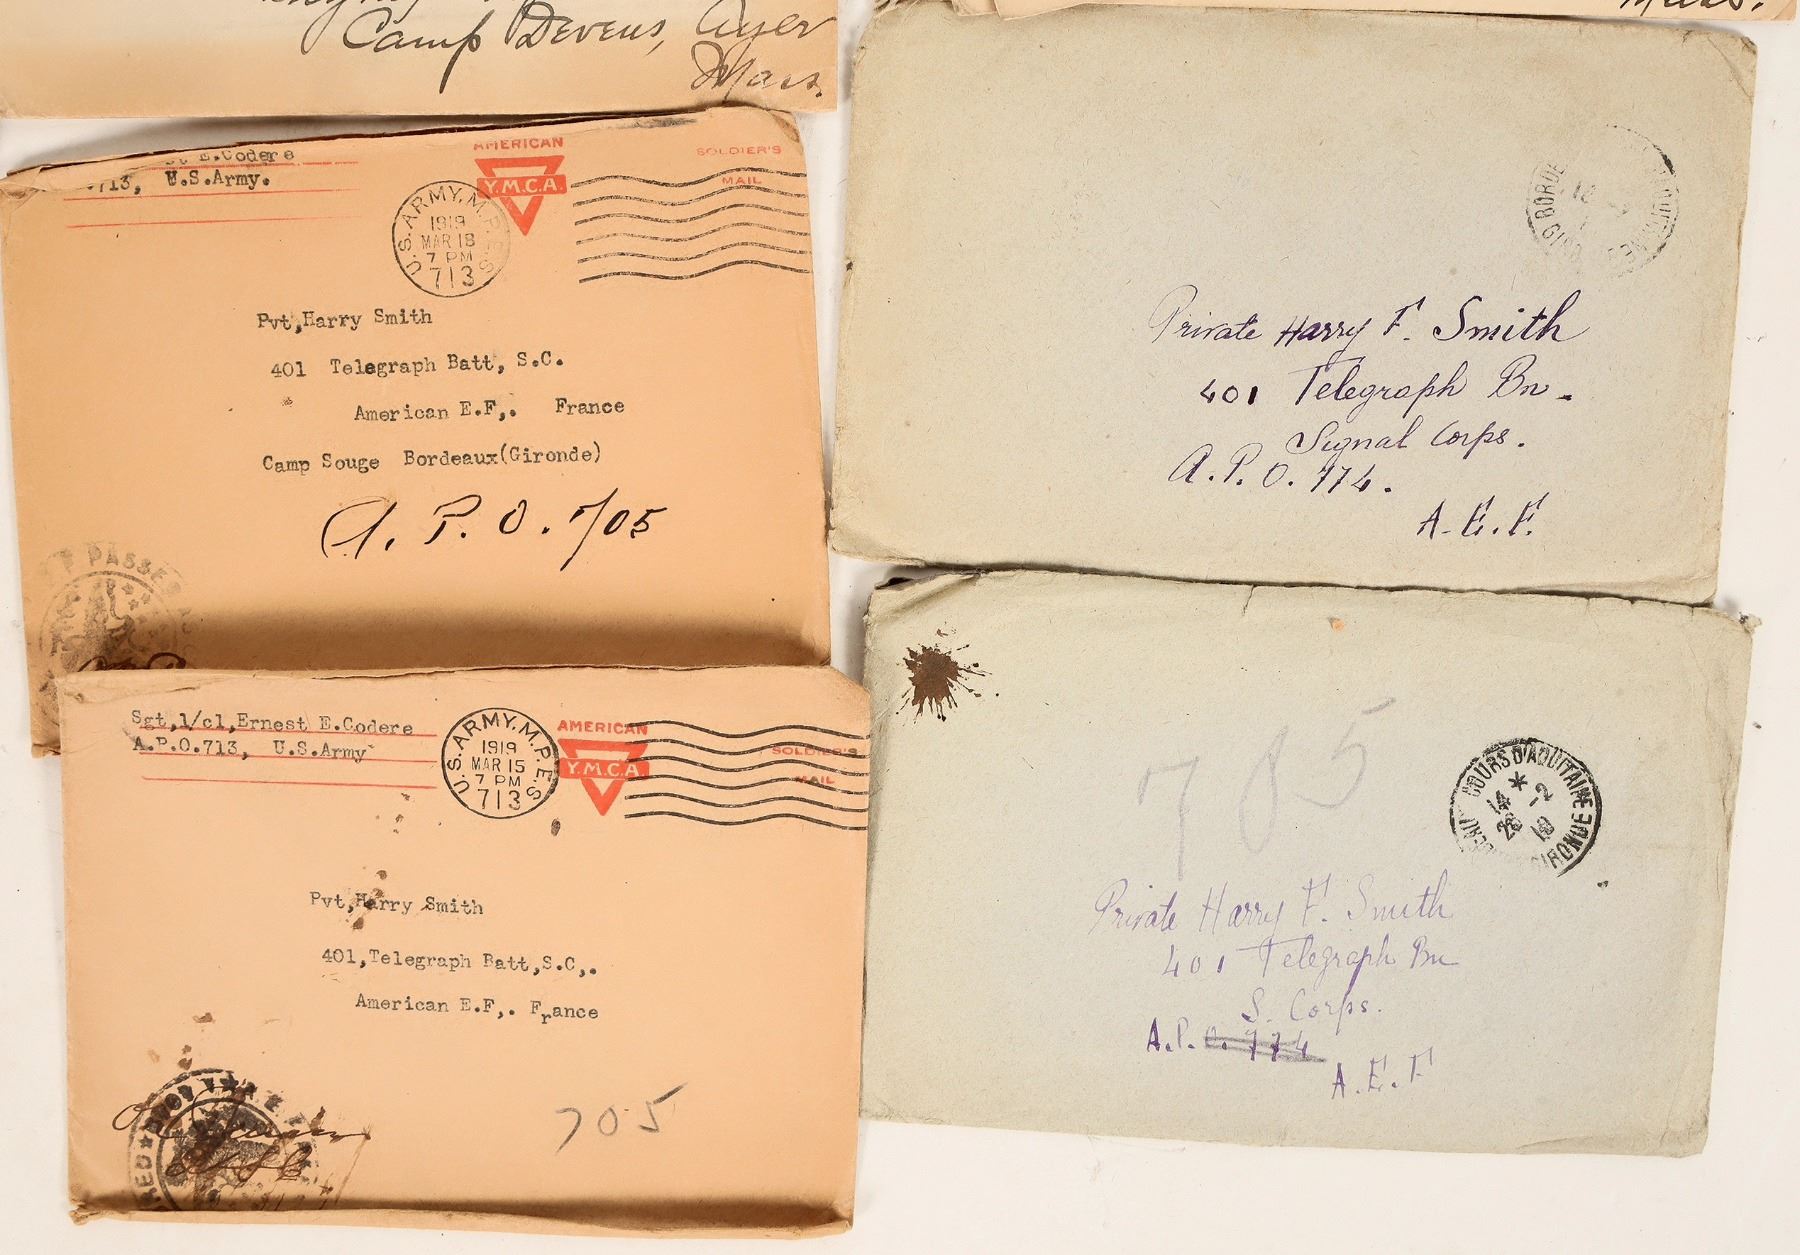 Camp Devens, Ayer
Mass.
Mass.
E.Codere
713, U.S.Army.
AMERICAN
Y.M.C.A.
SOLDIER'S
MAIL
U.S. ARMY, M.P.E.S.
1919
MAR 18
7 PM
713
Pvt,Harry Smith
401 Telegraph Batt, S.C.
American E.F,. France
Camp Souge Bordeaux(Gironde)
A. P. O. 705
PASSED
Sgt,1/cl,Ernest E.Codere
A.P.O.713, U.S.Army
U.S. ARMY, M.P.E.S.
1919
MAR 15
7 PM
713
AMERICAN
Y.M.C.A.
SOLDIER'S
MAIL
Pvt,Harry Smith
401,Telegraph Batt,S.C,.
American E.F,. France
705
Private Harry F. Smith
401 Telegraph Bn.
Signal Corps.
A.P.O. 774.
A.E.F.
705
COURS D'AQUITAINE
14 * -2
28 19
GIRONDE
Private Harry F. Smith
401 Telegraph Bn
S. Corps.
A.P.O. 774
A.E.F